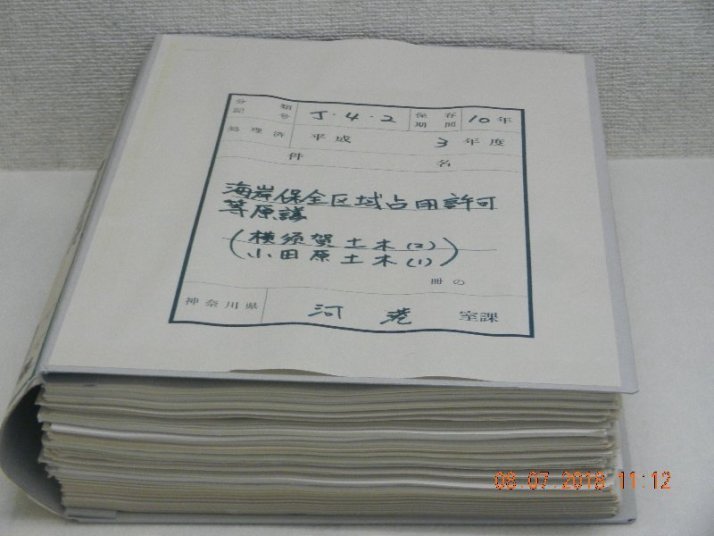 分類記号 J・4・2 保存期間 10年
処理済 平成 3年度
件名
海岸保全区域占用許可
等原議
(横須賀土木(2)
小田原土木(1))
冊の
神奈川県 河港 室課
06.07.2018 11:12